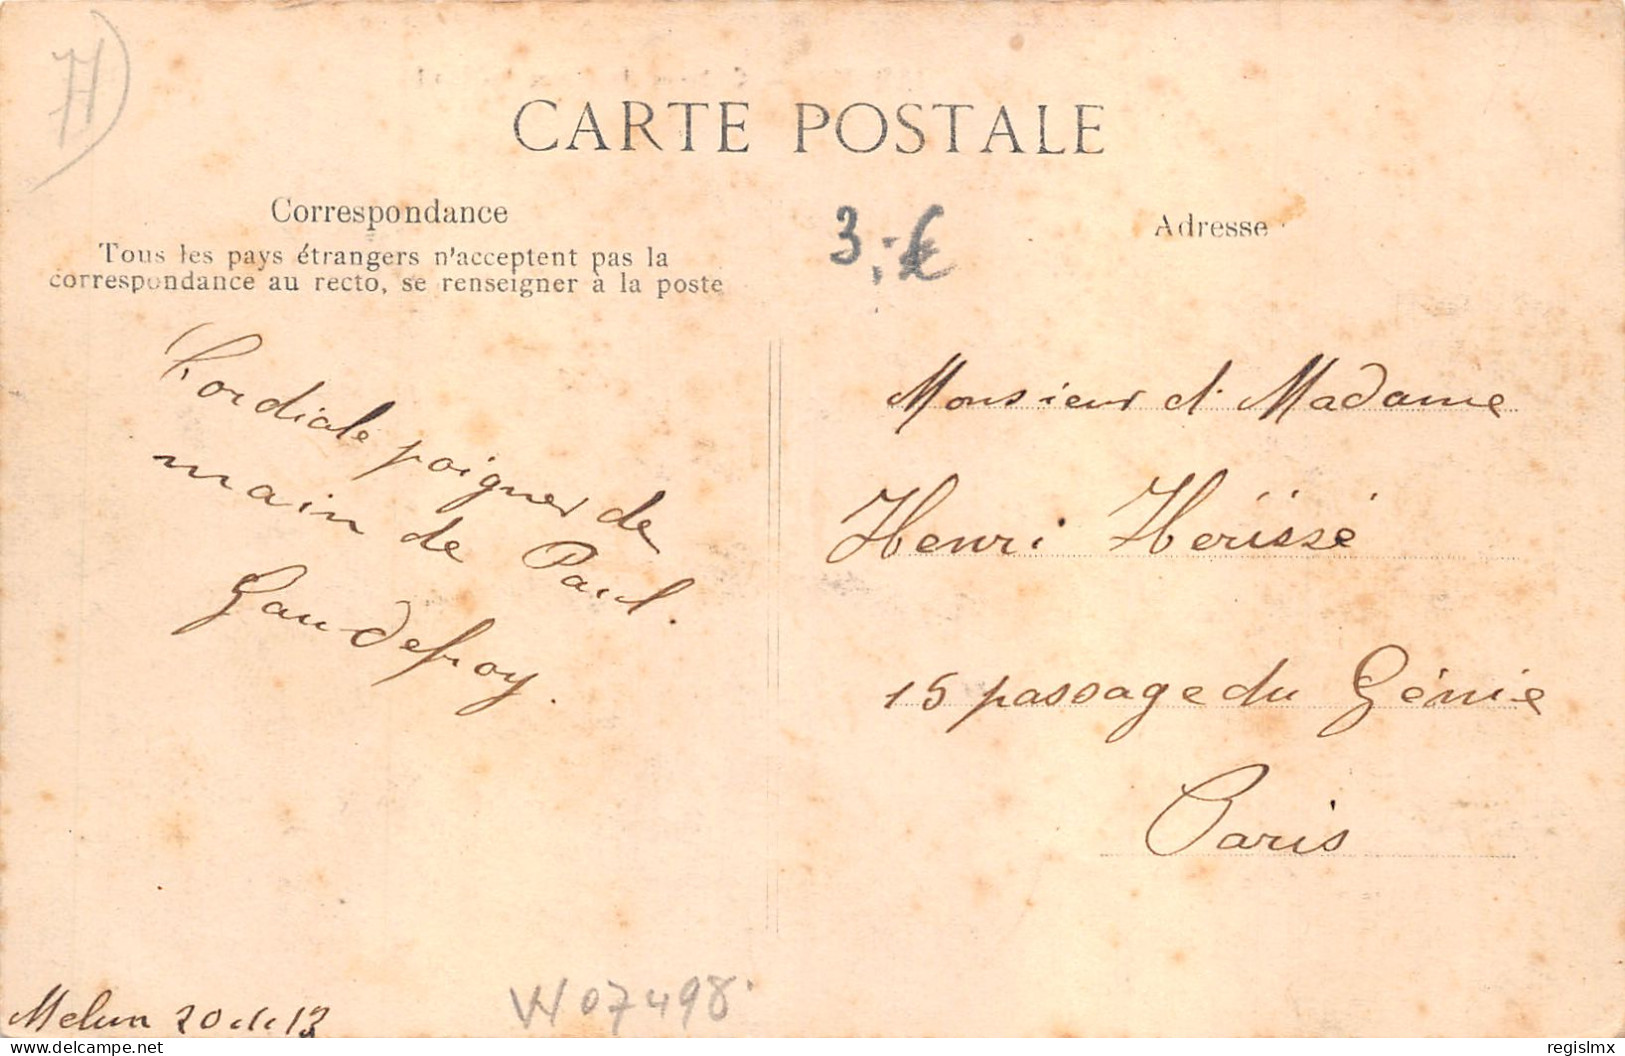 CARTE POSTALE
Correspondance
Tous les pays étrangers n'acceptent pas la
correspondance au recto, se renseigner à la poste
3,-€
Adresse
Cordiale poignés de
main de Paul
Gaudefroy.
Monsieur et Madame
Henri Hérissé
15 passage du Génie
Paris
Melun
W07498
www.delcampe.net
regislmx